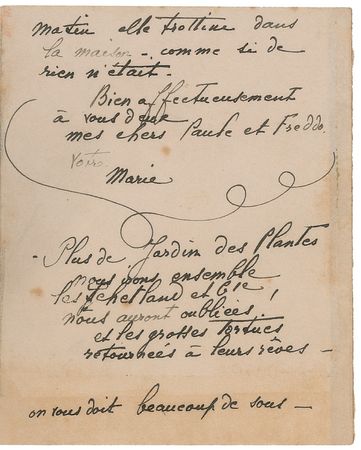 matin elle trottine dans
la maison - comme si de
rien n'était.
Bien affectueusement
à vous deux
mes chers Paule et Freddo.
Votre
Marie
- Plus de Jardin des Plantes
nous irons ensemble
les Schetland et Cie
nous auront oubliées !
et les grosses tortues
retournées à leurs rêves -
on vous doit beaucoup de sous -